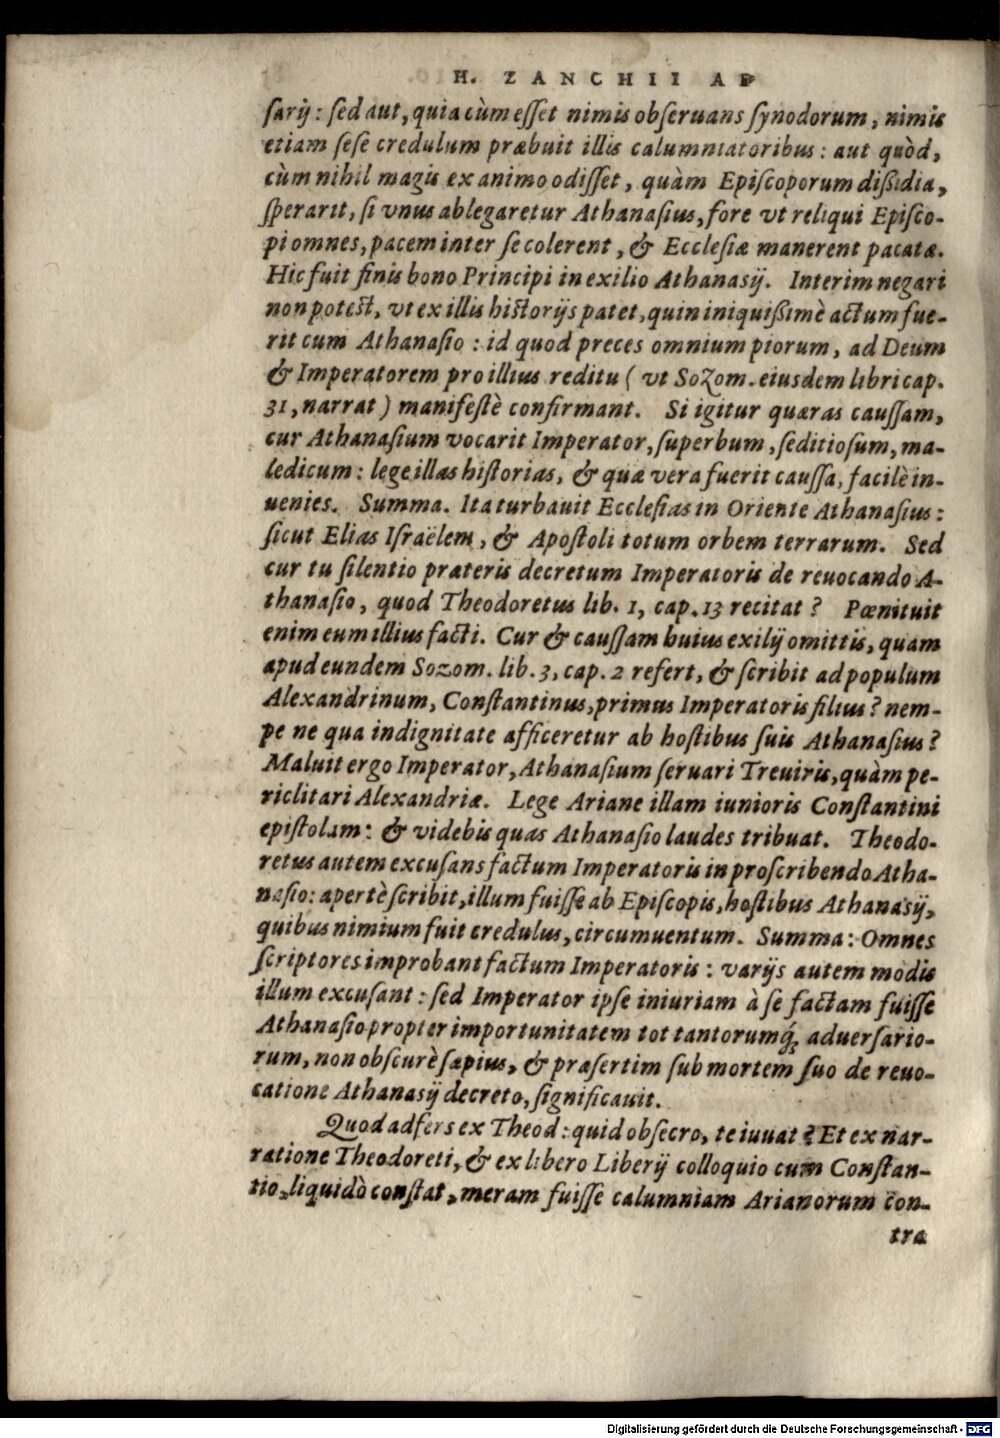 H. ZANCHII AD
ſarij: ſed aut, quia cùm eſſet nimis obſeruans ſynodorum, nimis
etiam ſeſe credulum præbuit illis calumniatoribus: aut quòd,
cùm nihil magis ex animo odiſſet, quàm Epiſcoporum dißidia,
ſperarit, ſi vnus ablegaretur Athanaſius, fore vt reliqui Epiſco-
pi omnes, pacem inter ſe colerent, & Ecclesiæ manerent pacatæ.
Hic fuit finis bono Principi in exilio Athanasij. Interim negari
non poteſt, vt ex illis hiſtorijs patet, quin iniquißimè actum fue-
rit cum Athanaſio: id quod preces omnium piorum, ad Deum
& Imperatorem pro illius reditu ( vt Sozom. eiusdem libri cap.
31, narrat ) manifeſtè confirmant. Si igitur quæras cauſſam,
cur Athanaſium vocarit Imperator, ſuperbum, ſeditioſum, ma-
ledicum: lege illas hiſtorias, & quæ vera fuerit cauſſa, facilè in-
uenies. Summa. Ita turbauit Ecclesias in Oriente Athanaſius:
ſicut Elias Iſraëlem, & Apoſtoli totum orbem terrarum. Sed
cur tu ſilentio præteris decretum Imperatoris de reuocando A-
thanaſio, quod Theodoretus lib. 1, cap. 13 recitat? Pœnituit
enim eum illius facti. Cur & cauſſam huius exilij omittis, quam
apud eundem Sozom. lib. 3, cap. 2 refert, & ſcribit ad populum
Alexandrinum, Conſtantinus, primus Imperatoris filius? nem-
pe ne qua indignitate afficeretur ab hoſtibus ſuis Athanaſius?
Maluit ergo Imperator, Athanaſium ſeruari Treuiris, quàm pe-
riclitari Alexandriæ. Lege Ariane illam iunioris Conſtantini
epiſtolam: & videbis quas Athanaſio laudes tribuat. Theodo-
retus autem excuſans factum Imperatoris in proſcribendo Atha-
naſio: apertè ſcribit, illum fuiſſe ab Epiſcopis, hoſtibus Athanasij,
quibus nimium fuit credulus, circumuentum. Summa: Omnes
ſcriptores improbant factum Imperatoris: varijs autem modis
illum excuſant: ſed Imperator ipſe iniuriam à ſe factam fuiſſe
Athanaſio propter importunitatem tot tantorumq́; aduerſario-
rum, non obſcurè ſæpius, & præſertim ſub mortem ſuo de reuo-
catione Athanasij decreto, ſignificauit.
Quod adfers ex Theod: quid obſecro, te iuuat? Et ex nar-
ratione Theodoreti, & ex libero Liberij colloquio cum Conſtan-
tio, liquidò conſtat, meram fuiſſe calumniam Arianorum con-
tra
Digitalisierung gefördert durch die Deutsche Forschungsgemeinschaft - DFG